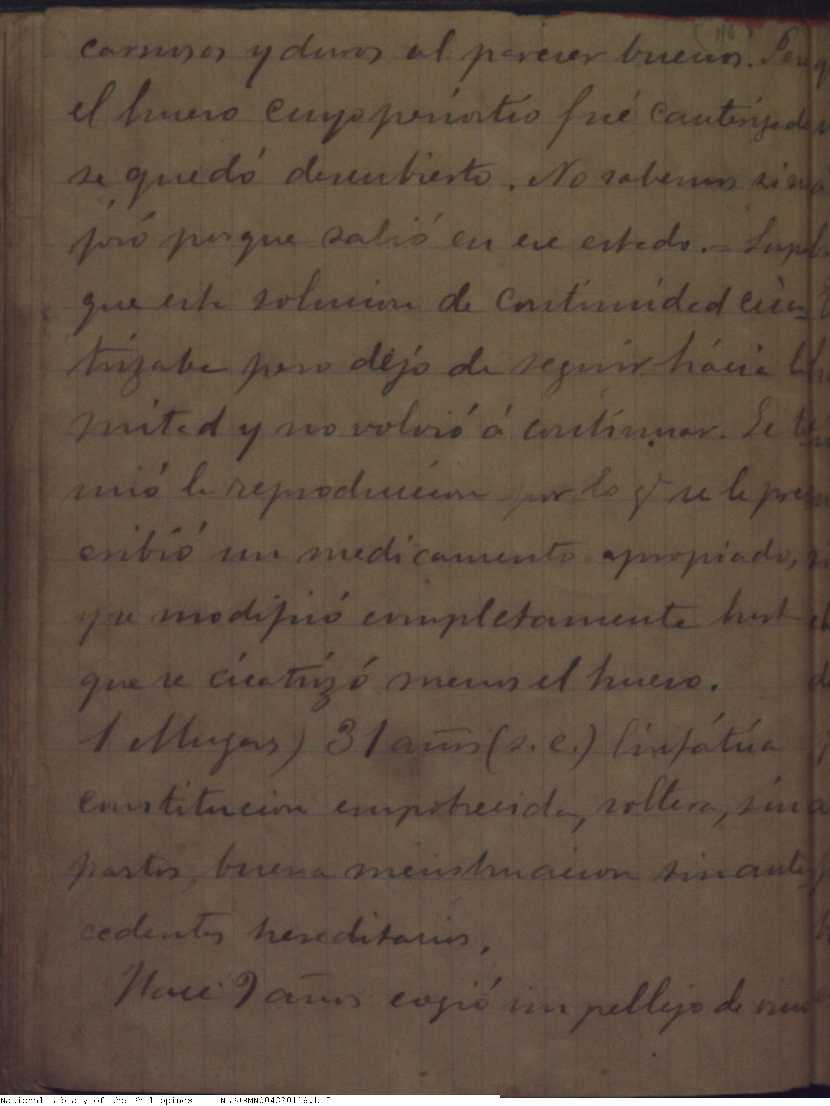 (116)
carnosos y duros al parecer buenos. Pero
el hueso cuyo periostio fué cauterizado
se quedó descubierto. No sabemos si me
joró porque salió en ese estado. - Supli
que esta solucion de continuidad cica-
trizaba pero dejó de seguir hácia la
mitad y no volvió á continuar. Se te
mió la reproduccion por lo q' se le pres
cribió un medicamento apropiado,
que modificó completamente hast
que se cicatrizó menos el hueso.
1 Mugas) 31 años (s. c.) linfática
constitucion empobrecida, soltera, sin
partos, buena menstruacion sin ante
cedentes hereditarios,
Hace 9 años cogió un pellejo de vino
National Library of the Philippines